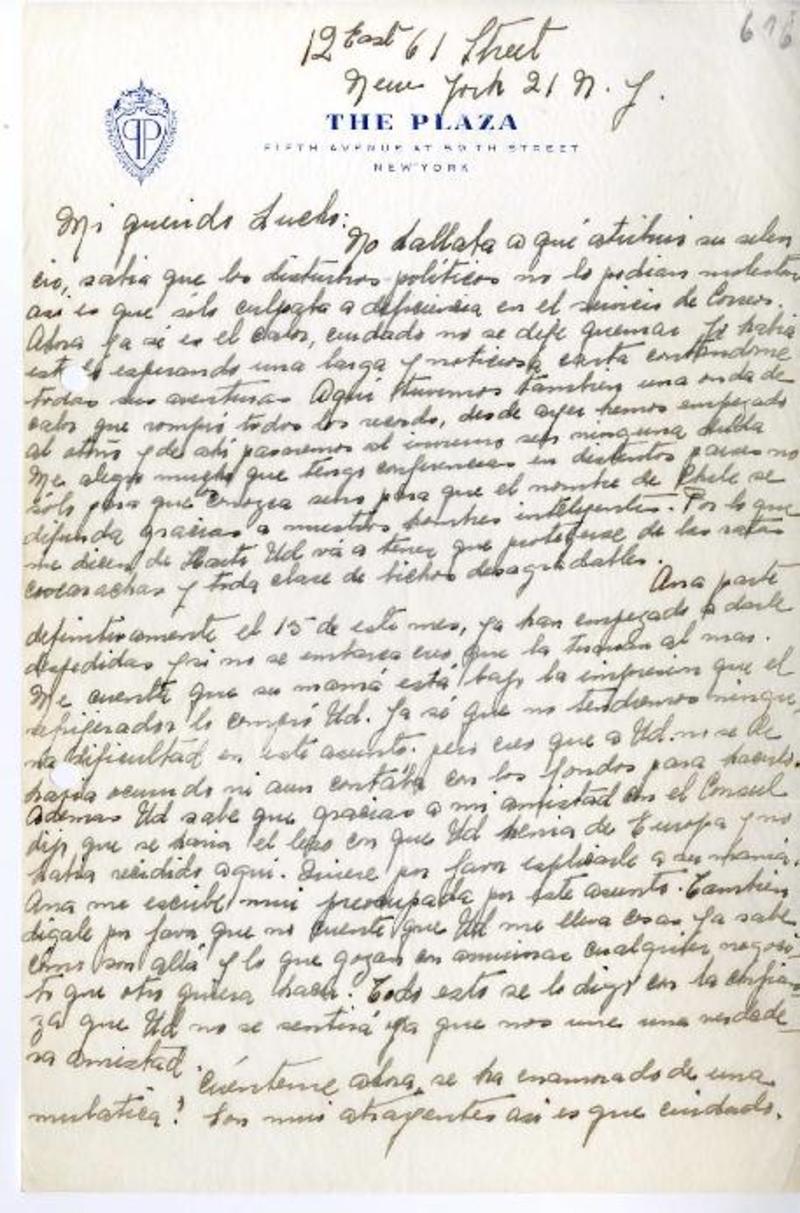 616
12 East 61 Street
New York 21 N. Y.
THE PLAZA
FIFTH AVENUE AT 59TH STREET
NEW YORK
Mi querido Lucho:
No hallaba a qué atribuir su silen
cio, sabia que los disturbios políticos no lo podian molestar
asi es que sólo culpaba a deficiencia en el servicio de Correos.
Ahora ya sé es el calor, cuidado no se deje quemar. Yo habia
estado esperando una larga y noticiosa carta contándome
todas sus aventuras. Aqui tuvimos también una onda de
calor que rompió todos los records, desde ayer hemos empezado
al otoño y de ahi pasaremos al invierno sin ninguna duda
Me alegro mucho que tenga conferencias en distintos paises no
sólo para que conozca sino para que el nombre de Chile se
difunda gracias a nuestros hombres inteligentes. Por lo que
me dicen de Haiti Ud vá a tener que protegerse de las ratas
cucarachas y toda clase de bichos desagradables.
Ana parte
definitivamente el 15 de este mes, ya han empezado a darle
despedidas y si no se embarca creo que la tiran al mar.
Me cuenta que su mamá está bajo la impresión que el
refrigerador lo compró Ud. Ya sé que no tendremos ningu-
na dificultad en este asunto. pero creo que a Ud. no se le
habia ocurrido ni aun contaba con los fondos para hacerlo.
Además Ud sabe que gracias a mi amistad con el Consul
dijo que se haria el leso con que Ud venia de Europa y no
habia residido aqui. Quiere por favor explicarle a su mamá.
Ana me escribe mui preocupada por este asunto. También
digale por favor que no cuente que Ud me lleva cosas ya sabe
cómo son allá y lo que gozan en arruinar cualquier negoci-
to que otro quiera hacer. Todo esto se lo digo con la confian
za que Ud no se sentirá ya que nos une una verdade_
ra amistad.
Cuénteme ahora, se ha enamorado de una
mulatica? Son mui atrayentes asi es que cuidado.